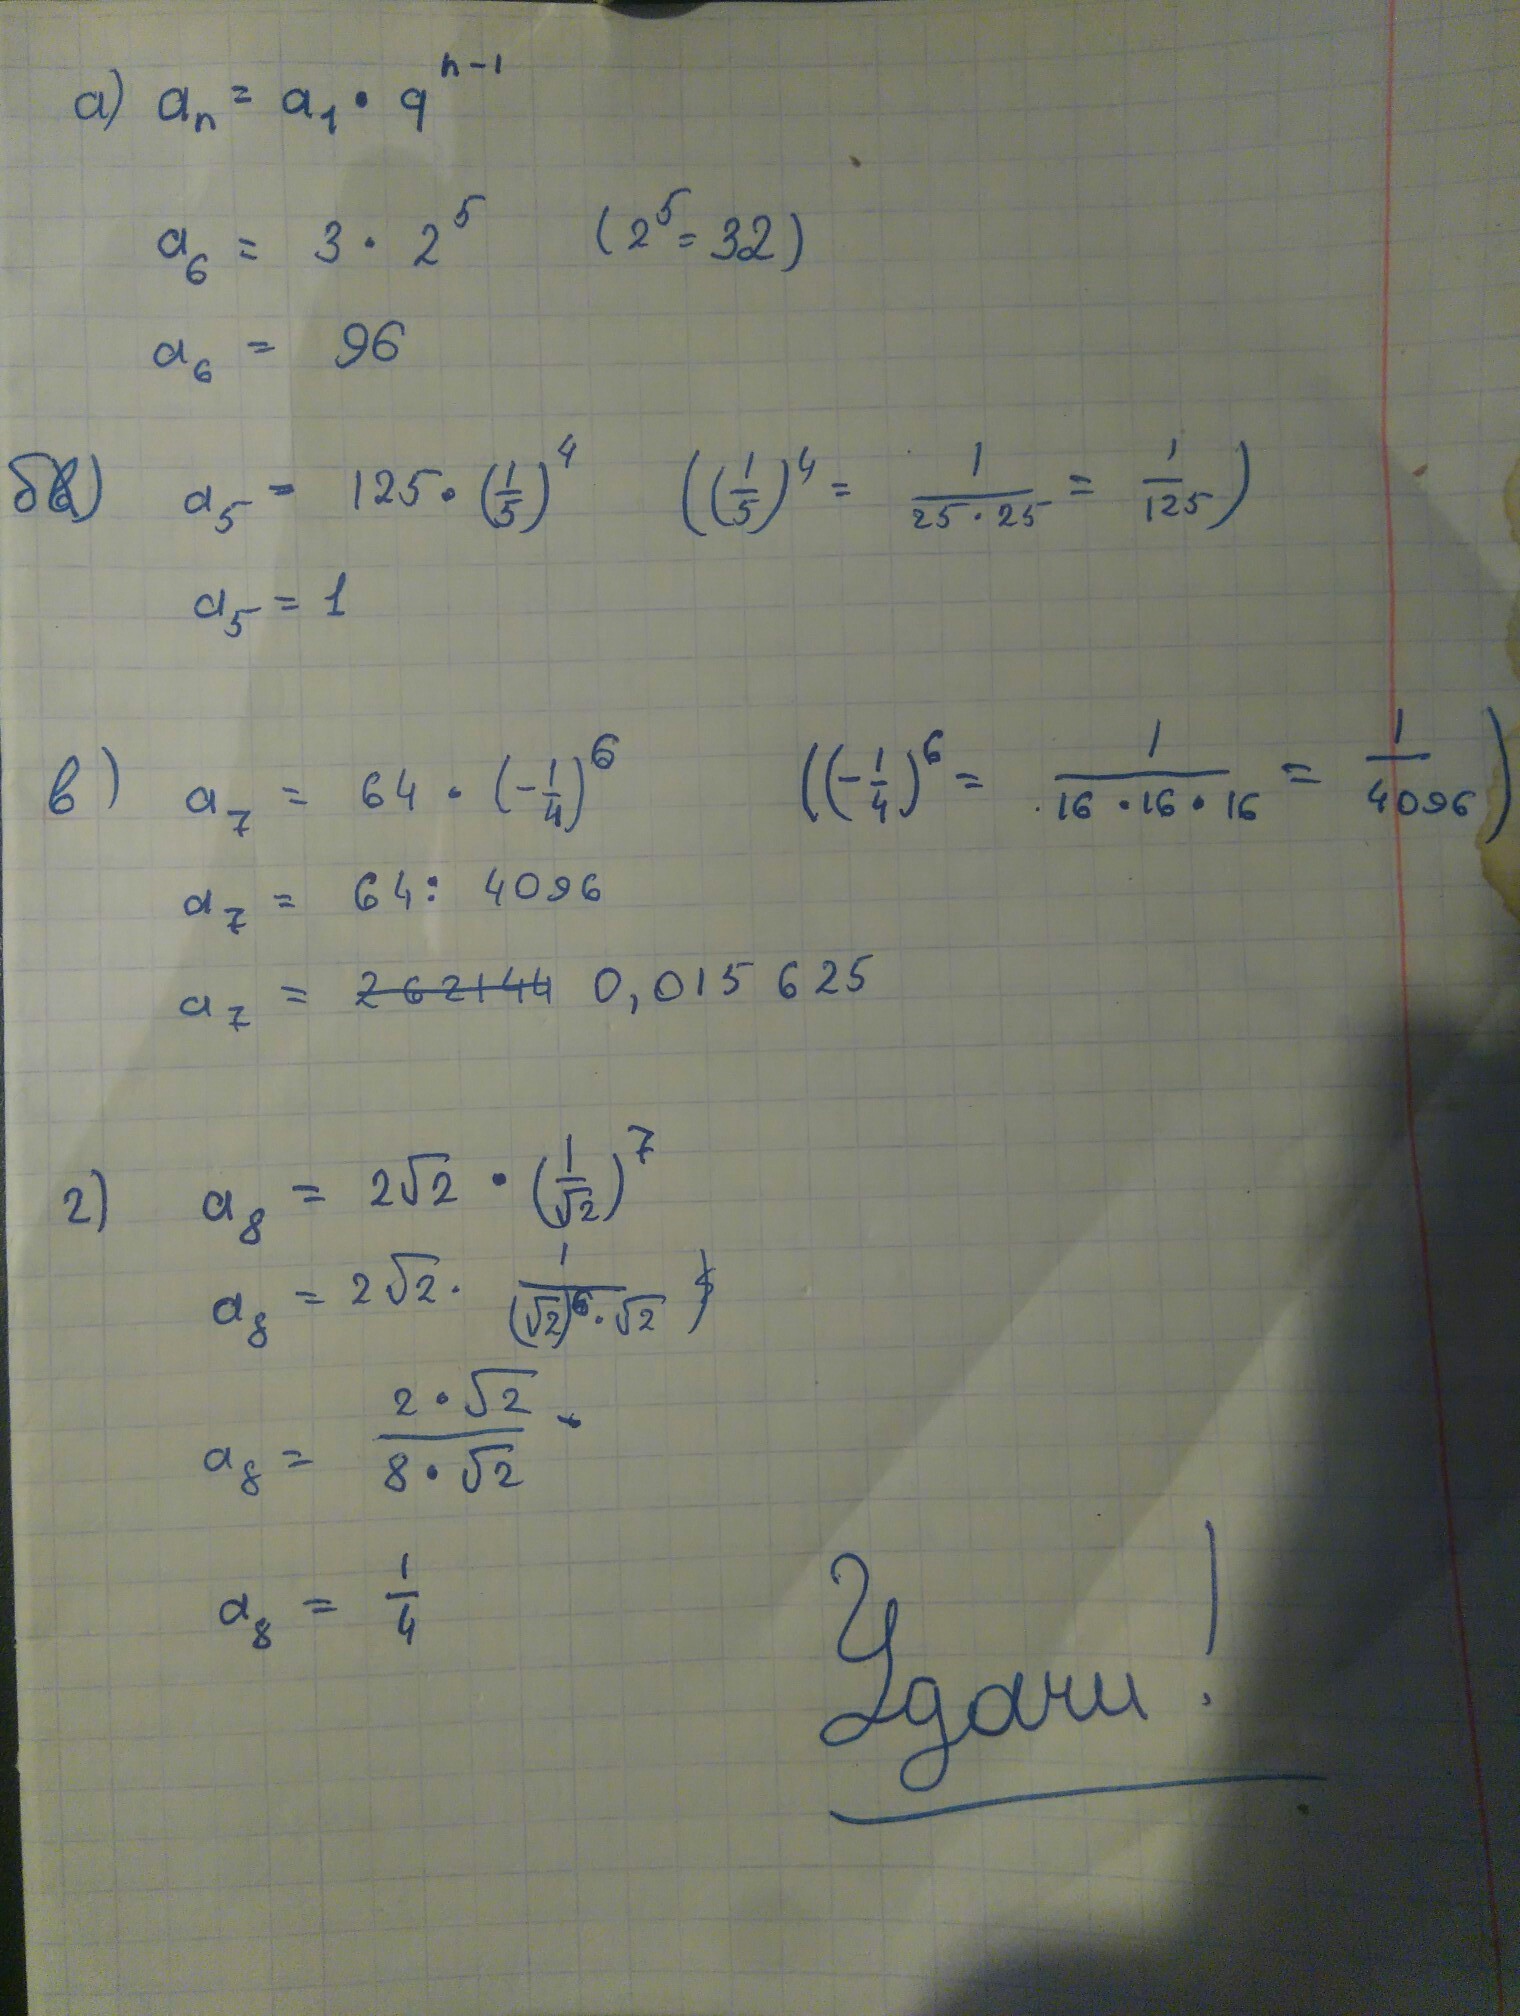 а) aₙ = a₁ · qⁿ⁻¹
a₆ = 3 · 2⁵ (2⁵ = 32)
a₆ = 96
б) a₅ = 125 · (1/5)⁴ ((1/5)⁴ = 1/(25 · 25) = 1/125)
a₅ = 1
в) a₇ = 64 · (-1/4)⁶ ((-1/4)⁶ = 1/(16 · 16 · 16) = 1/4096)
a₇ = 64 : 4096
a₇ = 262144 0,015 625
г) a₈ = 2√2 · (1/√2)⁷
a₈ = 2√2 · 1/((√2)⁶ · √2)
a₈ = (2 · √2)/(8 · √2)
a₈ = 1/4
Удачи!